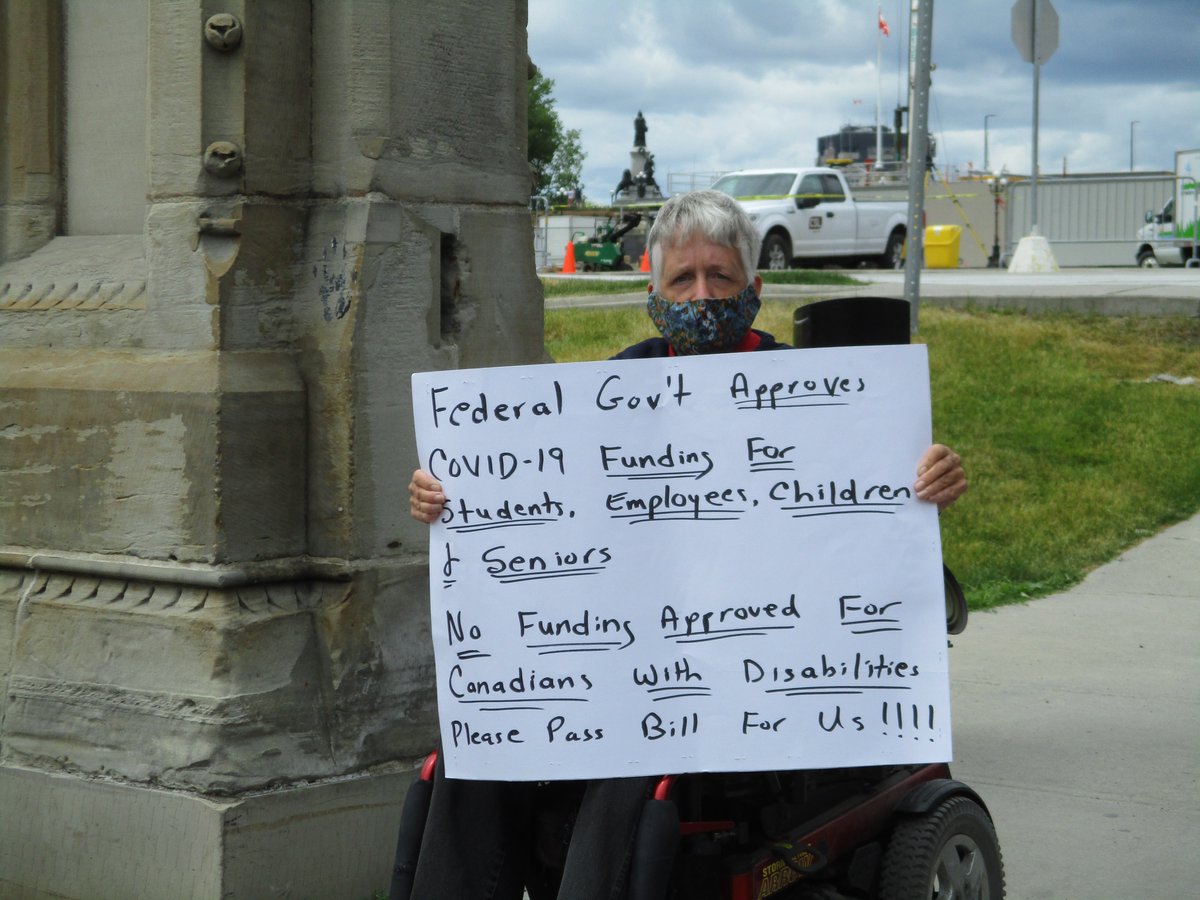 Federal Gov't Approves
COVID-19 Funding For
Students, Employees, Children
& Seniors
No Funding Approved For
Canadians With Disabilities
Please Pass Bill For Us!!!!
STORM